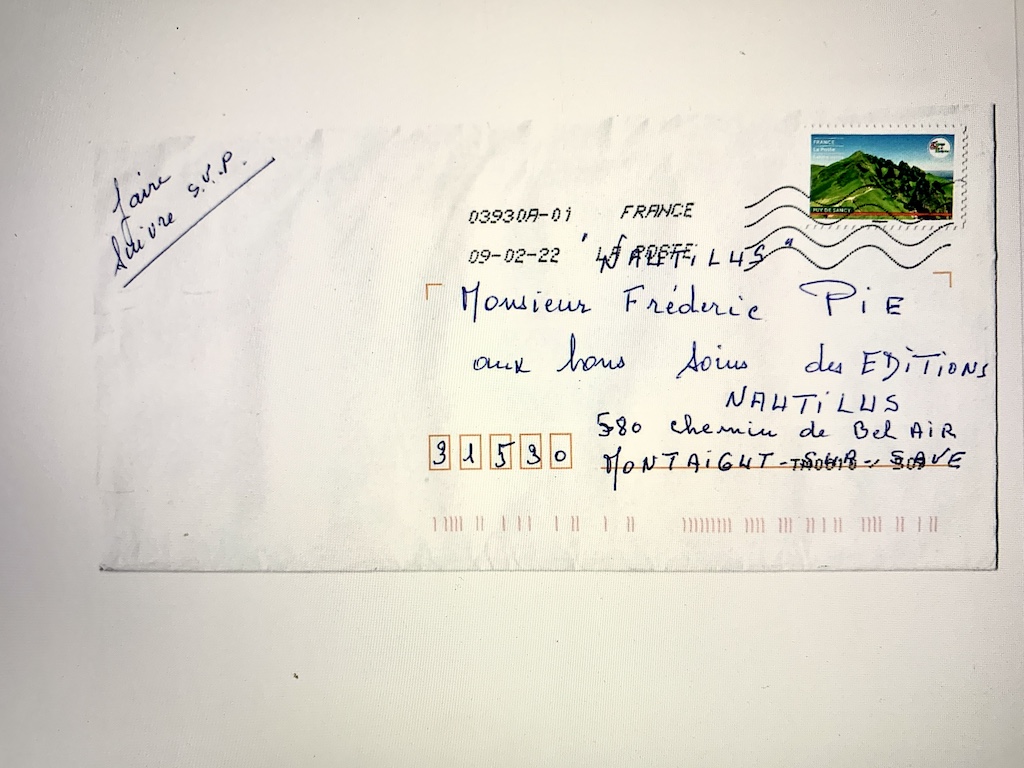 faire
suivre S.V.P.
FRANCE
La Poste
PUY DE SANCY
03930A-01 FRANCE
09-02-22 LA POSTE
"NAUTILUS"
Monsieur Fréderic PIE
aux bons soins des EDITIONS
NAUTILUS
580 chemin de Bel AIR
31530 MONTAIGUT-SUR-SAVE